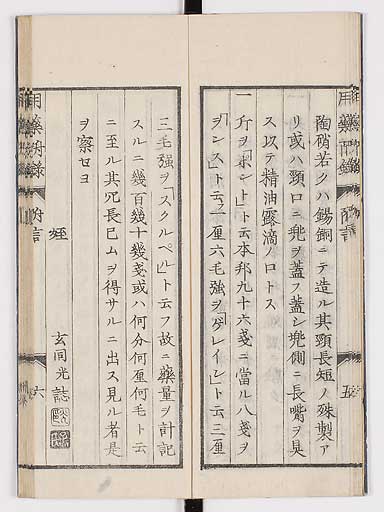 陶硝若クハ錫銅ニテ造ル其頸長短ノ殊製ア
リ或ハ頸口ニ兜ヲ蓋フ蓋シ兜側ニ長嘴ヲ具
ス以テ精油露滴ノ口トス
一斤ヲ「ポント」ト云本邦九十六戔ニ當ル八戔ヲ
「ヲンス」ト云一厘六毛強ヲ「ゲレイン」ト云三厘
五
三毛強ヲ「スクルペル」ト云フ故ニ藥量ヲ計記
スルニ幾百幾十幾戔或ハ何分何厘何毛ト云
ニ至ル其冗長已ムヲ得サルニ出ス見ル者是
ヲ察セヨ
玄同光誌
六